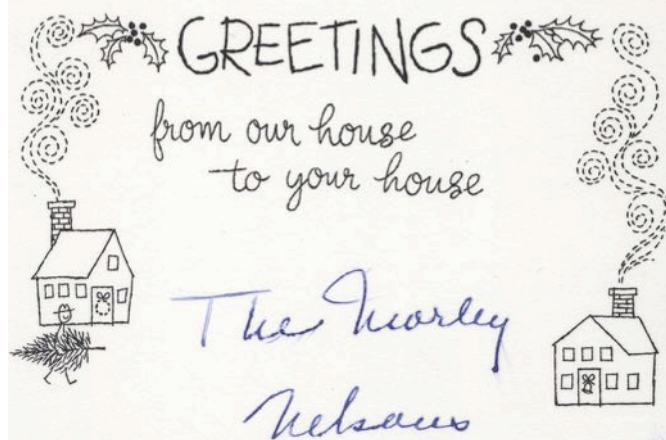 GREETINGS
from our house
to your house
The Morley
Nelsons